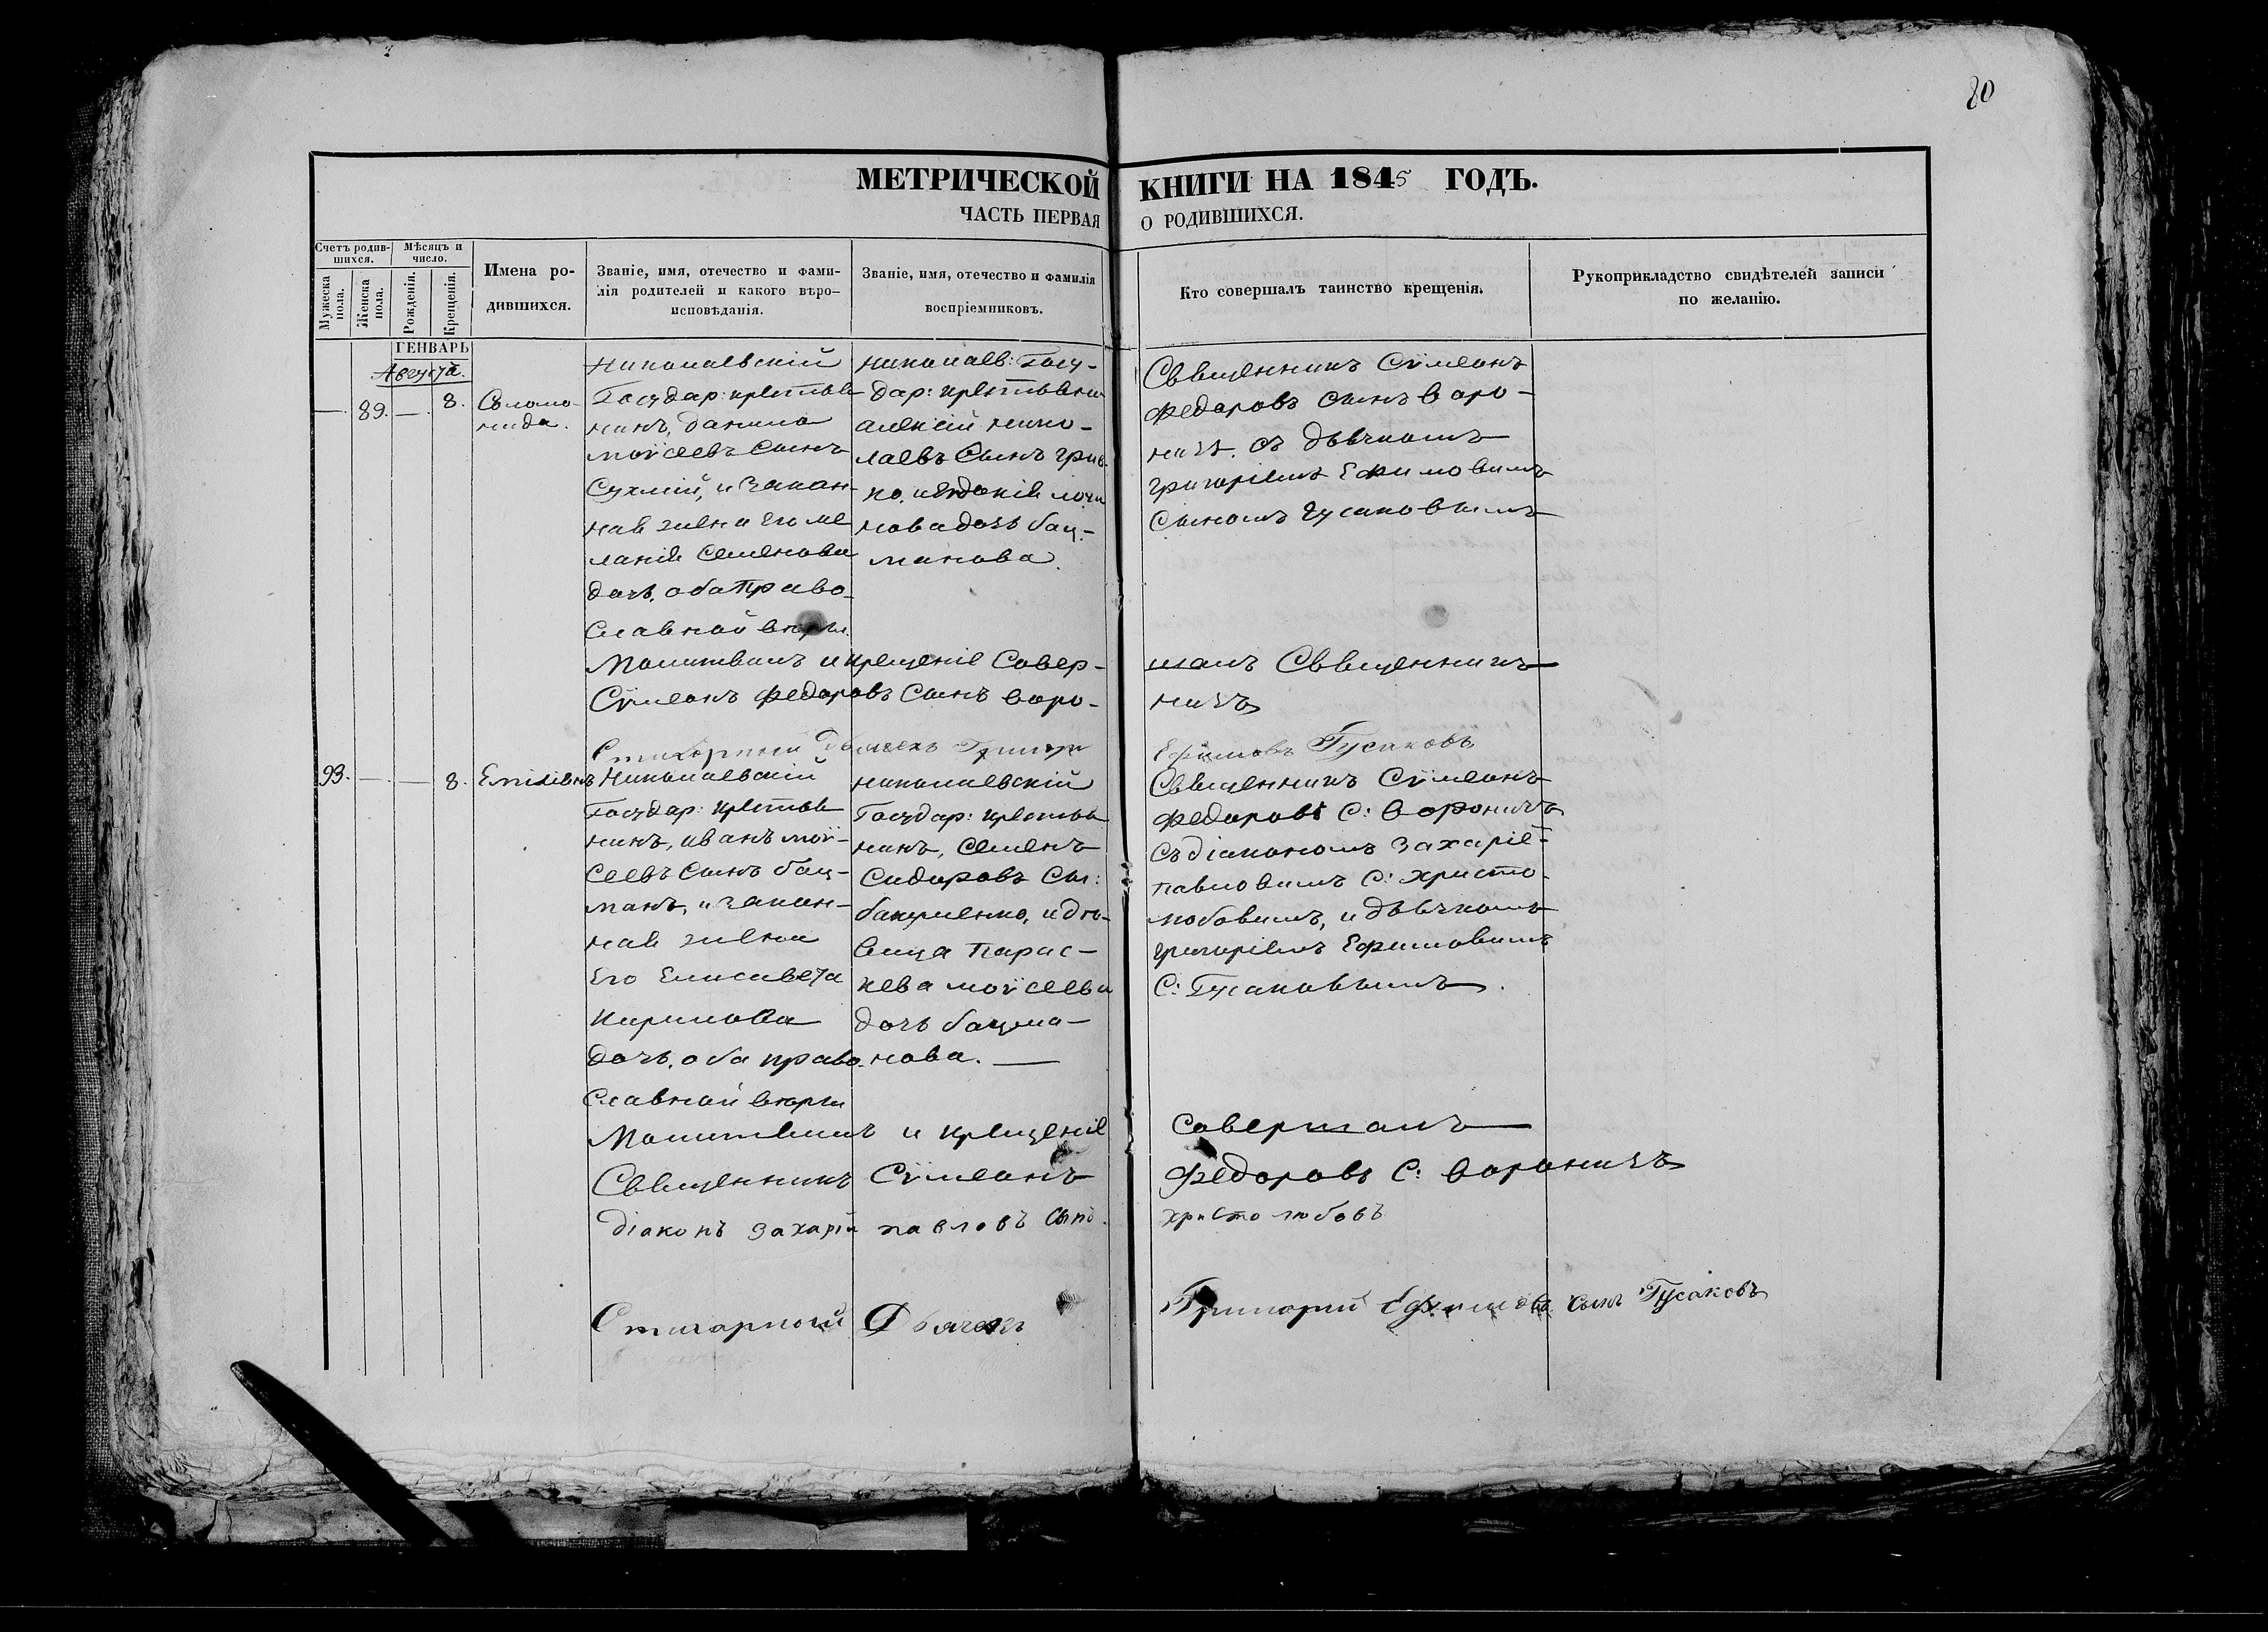 80
МЕТРИЧЕСКОЙ КНИГИ НА 1845 ГОДЪ.
ЧАСТЬ ПЕРВАЯ О РОДИВШИХСЯ.
Счетъ родив-
шихся.
Мужеска
пола.
Женска
пола.
Мѣсяцъ и
число.
Рожденія.
Крещенія.
Имена ро-
дившихся.
Званіе, имя, отечество и фами-
лія родителей и какого вѣро-
исповѣданія.
Званіе, имя, отечество и фамилія
воспріемниковъ.
Кто совершалъ таинство крещенія.
Рукоприкладство свидѣтелей записи
по желанію.
ГЕНВАРЬ
Августа.
—. 89. —. 8.
Соломо-
нида.
Николаевскій
Государ: крестья-
нинъ, данило
моѵсеевъ сынъ
Сухлій, и закон-
ная жена его ме
ланія Семенова
дочь. оба право-
славной вѣры.
николаев: Госу-
дар: крестьянин
алексій нико-
лаевъ Сынъ
нова дочь бац-
манова.
Священникъ Сѵмеонъ
Федоровъ сынъ воро-
ничъ. съ дьячкомъ
григоріемъ Ефимовымъ
Сыномъ Гусаковымъ
Молитвилъ и крещеніе Совер-
шалъ Священникъ
Сѵмеонъ Федоровъ Сынъ воро-
ничъ
Стихарный Дьячекъ Григори
Ефимовъ Гусаковъ
93. —. — 8.
Емиліянъ
Николаевскій
Государ: крестья
нинъ, иванъ моѵ-
сеевъ сынъ бац-
манъ, и закон-
ная жена
Его Елисавета
Карпова
дочь. оба право-
славной вѣры
николаевскій
Государ: крестья
нинъ, Семенъ
Сидоровъ Сы:
и дѣ-
вица Парас-
кева моѵсеева
дочь бацма-
нова. —
Священникъ Сѵмеонъ
Федоровъ С: вороничъ
съ діакономъ Захаріе-
павловымъ С: христо-
любовымъ, и дьячкомъ
григоріемъ Ефимовымъ
С: Гусаковымъ.
Молитвилъ и крещеніе
Совершалъ
Священникъ Сѵмеонъ
Федоровъ С: вороничъ
Діаконъ Захарій павловъ Сынъ.
христолюбовъ
Стихарный Дьячекъ
Григорий Ефимовъ сынъ Гусаковъ